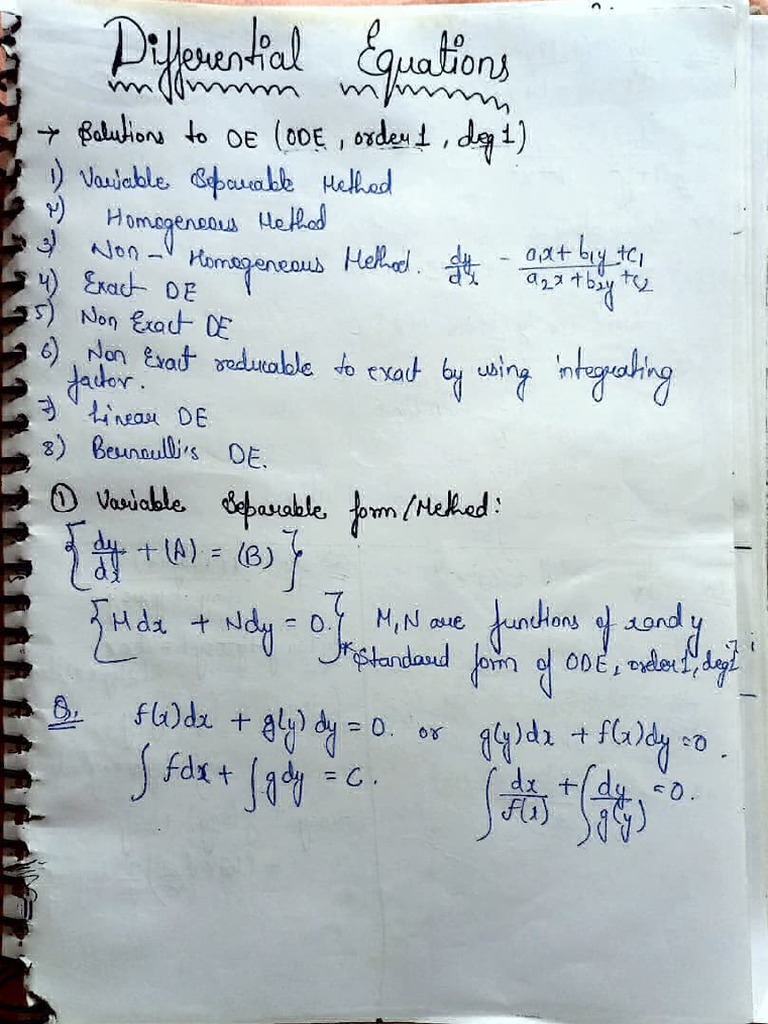 Differential Equations
→ Solutions to DE (ODE, order 1, deg 1)
1) Variable Separable Method
2) Homogeneous Method
3) Non - Homogeneous Method. dy/dx - a₁x + b₁y + c₁ / a₂x + b₂y + c₂
4) Exact DE
5) Non Exact DE
6) Non Exact reducable to exact by using integrating
factor.
7) Linear DE
8) Bernoulli's DE.
① Variable Separable form/Method:
{dy/dx + (A) = (B)}
{Mdx + Ndy = 0.} M, N are functions of x and y
*Standard form of ODE, order 1, deg 1
Q. f(x)dx + g(y)dy = 0. or g(y)dx + f(x)dy = 0.
∫fdx + ∫gdy = C. ∫dx/f(x) + ∫dy/g(y) = 0.